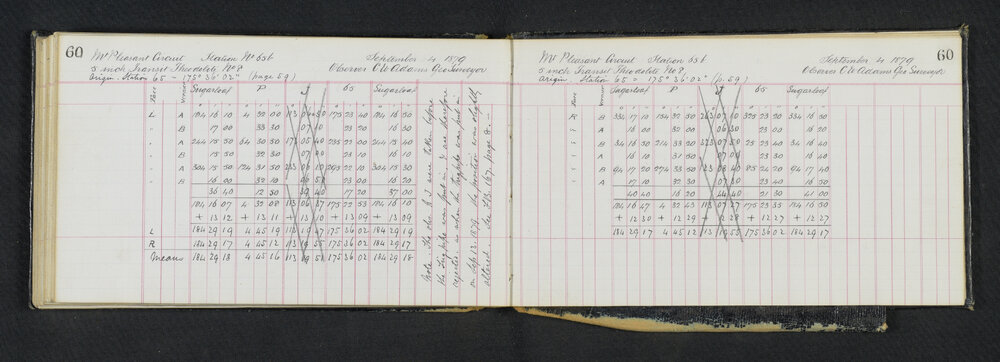 60
Mt Pleasant Circuit Station No 65b September 4 1879
5 inch Transit Theodolite No 8 Observer C W Adams Geo Surveyor
Origin. Station 65 = 175° 36' 02" (page 59)
Face Vernier Sugarloaf P J 65 Sugarloaf
L A 184 16 10 4 32 00 175 23 40 184 16 50
B 17 00 33 30 23 00 16 20
A 244 15 50 64 30 50 235 22 40 244 15 40
B 15 50 32 30 23 10 16 10
A 304 15 50 124 31 50 295 22 10 304 15 50
B 16 00 32 10 23 00 16 20
36 40 12 50 17 20 37 00
184 16 07 4 32 08 113 06 37 175 22 53 184 16 10
+ 13 12 + 13 11 + 13 09 + 13 09
L 184 29 19 4 45 19 113 19 47 175 36 02 184 29 19
R 184 29 17 4 45 12 113 19 55 175 36 02 184 29 17
Means 184 29 18 4 45 16 113 19 51 175 36 02 184 29 18
Note. The obsns of J were taken before
the Trig pipe was put in & are therefore
rejected as when the Trig pipe was put in
on Sep 13. 1879 the position was slightly
altered. See page 8.
60
Mt Pleasant Circuit Station 65b September 4 1879
5 inch Transit Theodolite No 8. Observer C W Adams Geo Surveyor
Origin. Station 65 = 175° 36' 02" (p. 59)
Face Vernier Sugarloaf P J 65 Sugarloaf
R B 334 17 10 154 32 50 263 07 10 325 23 20 334 16 50
A 16 10 32 00 06 30 23 00 16 20
B 34 16 50 214 33 20 323 07 50 23 30 17 40
A 16 10 31 50 07 00 23 00 16 40
B 94 17 20 274 33 50 123 08 40 85 24 20 94 17 40
A 17 10 32 30 07 30 23 40 16 50
40 40 16 20 44 40 21 30 41 00
184 16 47 4 32 43 113 07 27 175 23 35 184 16 50
+ 12 30 + 12 29 + 12 28 + 12 27 + 12 27
184 29 17 4 45 12 113 19 55 175 36 02 184 29 17